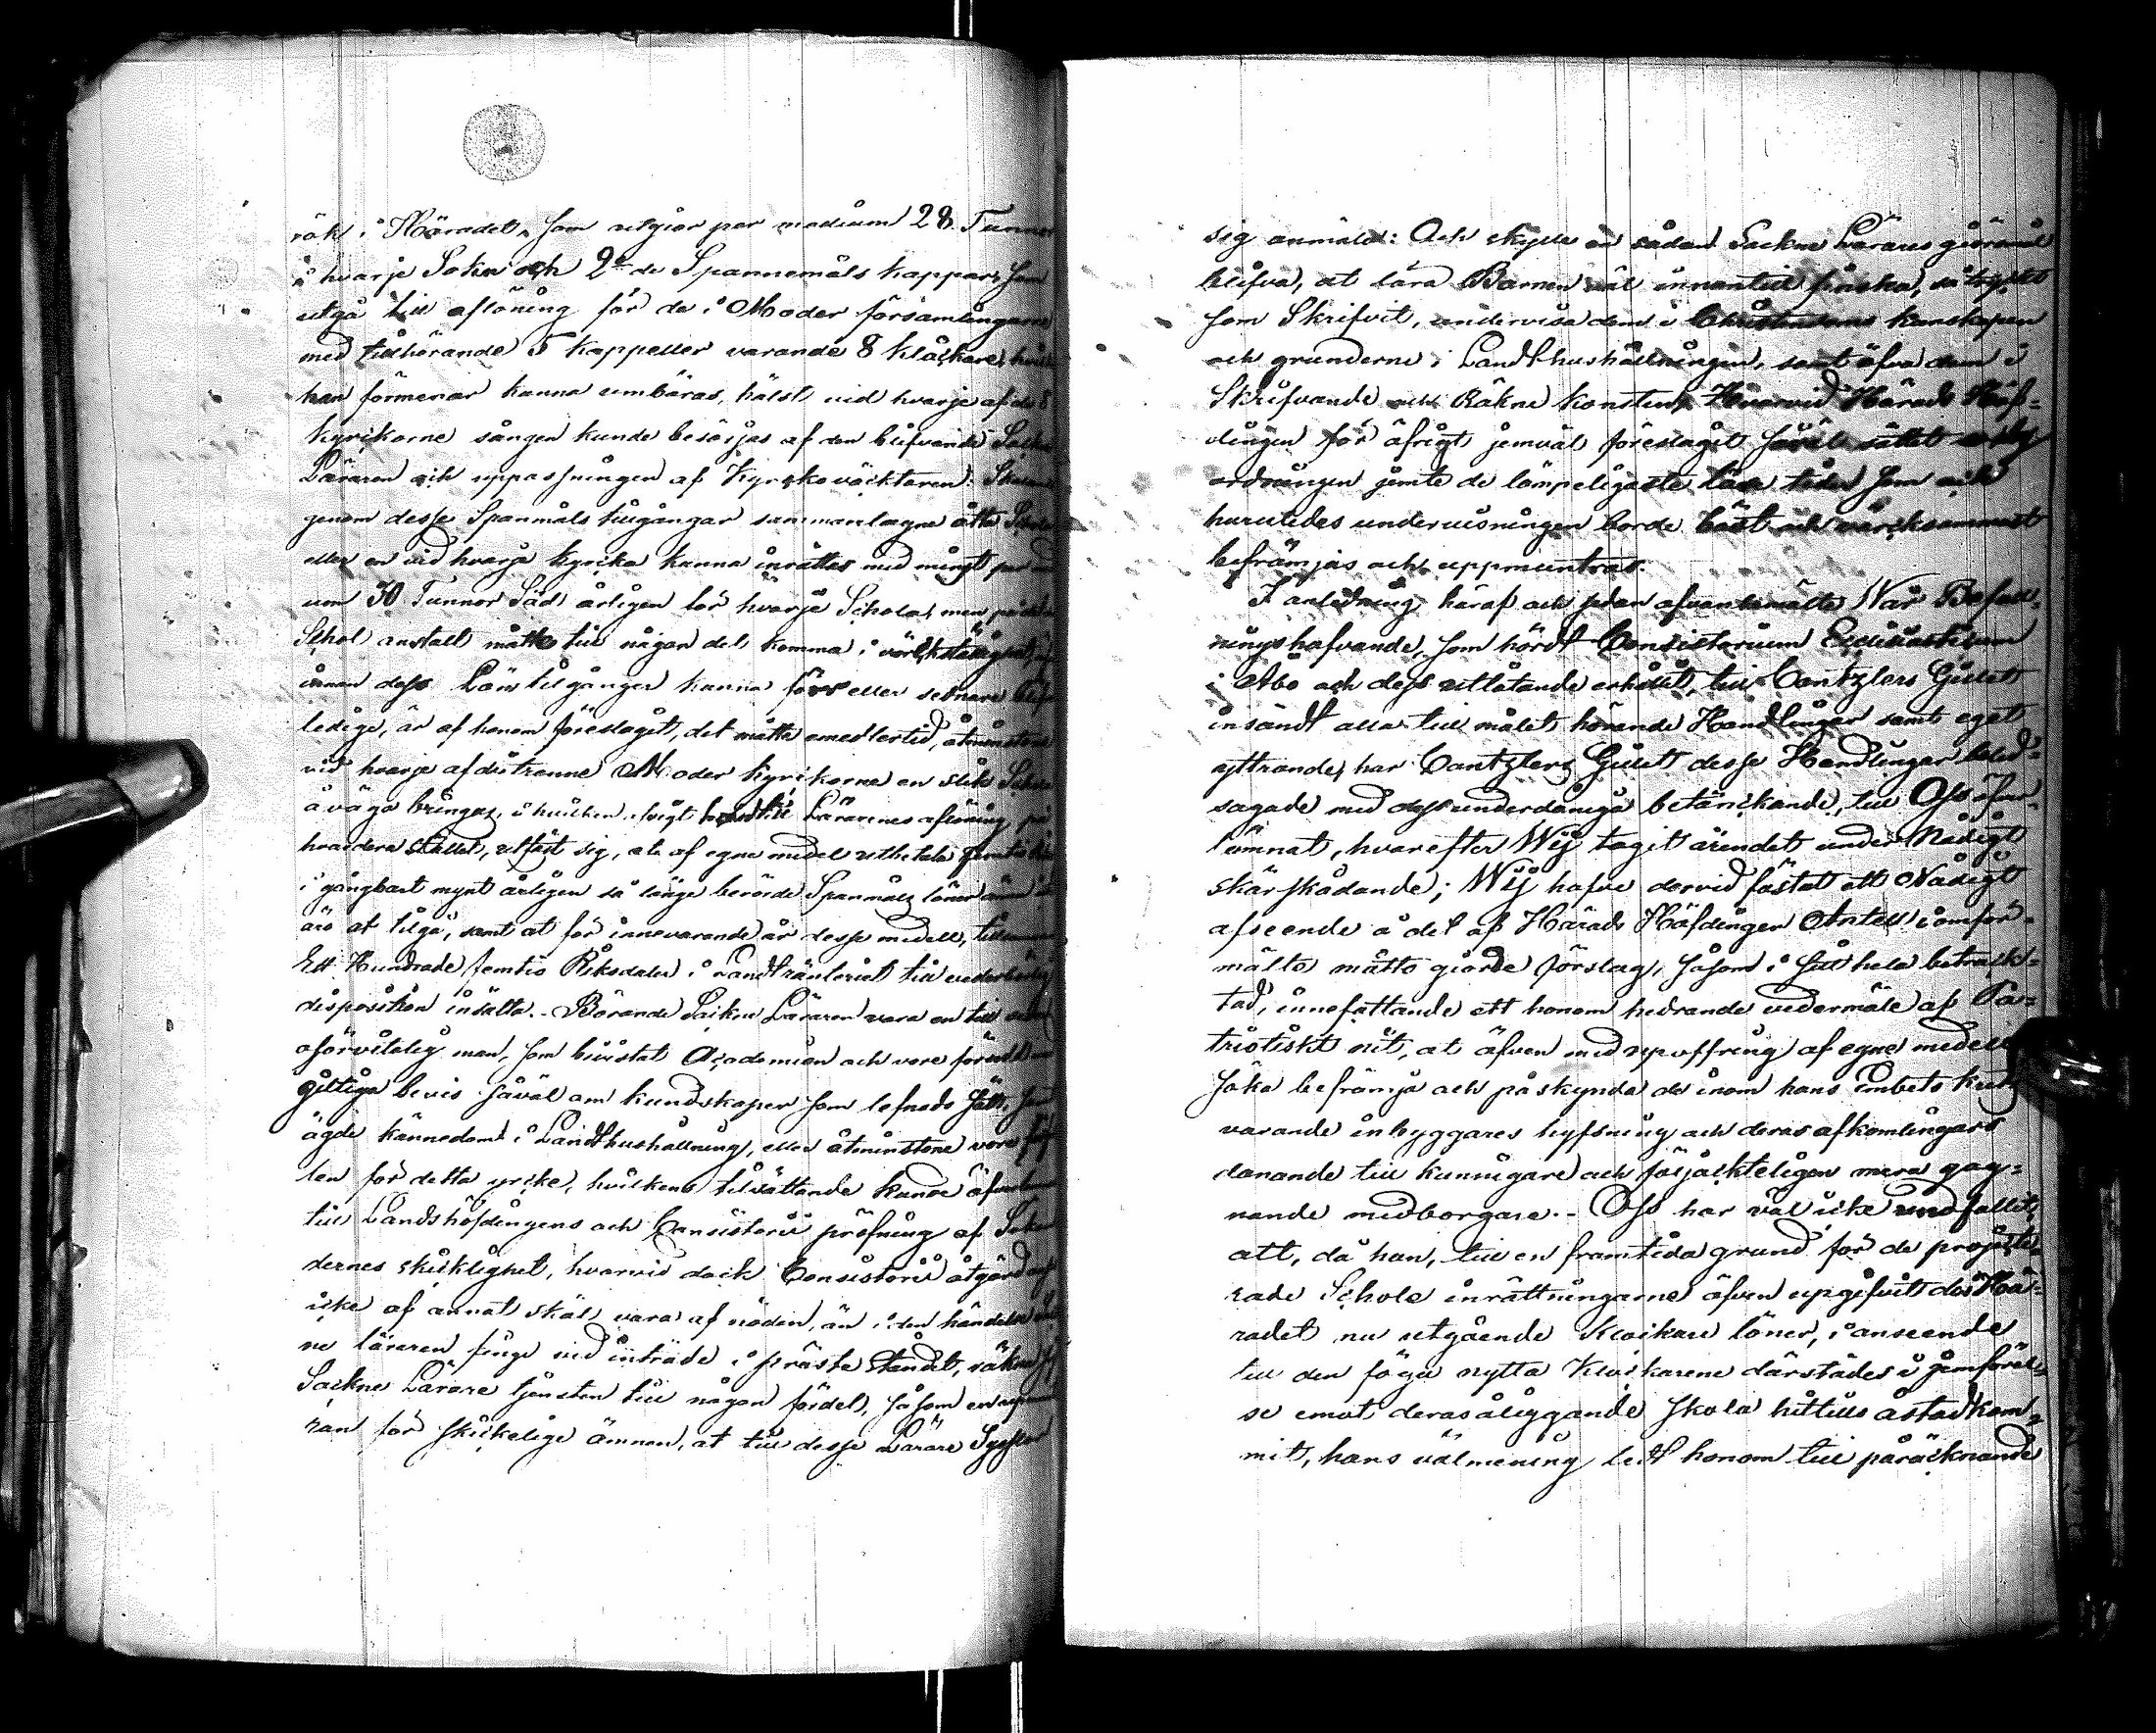 rök i Häradet, som utgiör per medium 28. Tunnor
i hvarje Sokn och 2:de Spannemåls kappar, som
utgå till aflöning för de i Moder församlingarne
med tillhörande 5 kappeller varande 8 kläckare,
han förmenar kunna umbäras, hälst vid hvarje af de 8
kyrkorne sången kunde besörjas af den blifvande Sockne
Läraren och uppassningen af Kyrkoväcktaren:
genom desse Spanmåls tillgångar sammanlagne åtta Scholor
eller en vid hvarje kyrka kunna inrättas med mingt per medi-
um 30 Tunnor Säd årligen för hvarje Schola, men på det
Schol anstalt måtte till någon del komma i värckställighet,
innan dess Löns tilgångar kunna förr eller sednare blifva
ledige, är af honom föreslaget, det måtte emedlertid, åtminstone
vid hvarje af de trenne Moder kyrkorne en slik Schola
å väga bringas, i hvilken Lärarenes aflöning på
hvardera stället, utfäst sig, at af egne medel utbetala femtio
i gångbart mynt årligen så länge berörde Spanmåls löner
äro at tilgå, samt at för innevarande år desse medell, tillsammans
Ett Hundrade femtio Riksdaler i Landtränteriet till vederbörlig
disposition insätta. - Börande Sockne Läraren vara en till seder
oförvitelig man, som bivistat Academien och vore försedd med
giltiga bevis såväl om kundskaper som lefnads sätt, samt
ägde kännedom i Landthushållning, eller åtminstone vore
len för detta yrke, hvilkens tilsättande kunde äfven
till Landshöfdingens och Consistorii pröfning af Sökan-
dernes skicklighet, hvarvid dock Consistorii åtgärd
icke af annat skäl vara af nöden, än i den händelse
ne läraren finge vid inträde i präste ståndet, räkna sig
Sockne Lärare tjensten till någon fördel, såsom en uppmun-
ran för skickelige ämnen, at till desse Lärare Sysslor
sig anmäla: Och skulle en sådan Sockne Lärares giöromål
blifva, at lära Barnen väl innantill finska, så tryckt
som Skrifvit, undervisa dem i Christendoms kunskapen
och grunderne i Landthushållningen, samt öfva dem i
Skrifvande och Räkne konsten; Hvarvid Härads Höf-
dingen för öfrigt jemväl föreslagit såväl sättet och
ordningen jemte de lämpeligaste läse tider som ock
hurutedes undervisningen borde bäst och värcksammast
befrämjas och uppmuntras.
I anledning häraf och sedan ofvanbemälte Wår Befall-
ningshafvande, som hördt Consistorium Ecclesiasticum
i Åbo och dess utlåtande erhållit, till Cantzlers Gillet
insändt alla till målet hörande Handlingar samt eget
yttrande, har Cantzlers Gillet desse Handlingar beled-
sagade med dess underdåniga betänckande, till Oss öfver-
lämnat, hvarefter Wij tagit ärendet under Nådigt
skärskådande; Wij hafve dervid fästat ett Nådigt
afseende å det af Härads Höfdingen Antell i omför-
mälte måtto giorde förslag, såsom i sitt hela betrack-
tad, innefattande ett honom hedrande vedermäle af Pa-
triotiskt nit, at äfven med upoffring af egne medell
söka befrämja och påskynda de inom hans Embets krets
varande inbyggares hyfsning och deras afkomlingars
danande till kunnigare och försäckteligen mera gag-
nande medborgare. - Oss har väl icke undfallit,
att, då han, till en framtida grund för de projecte-
rade Schole inrättningarne äfven upgifvit de i Hä-
radet nu utgående Klockare löner, i anseende
till den föga nytta Klockarene därstädes i jemförel-
se emot deras åliggande skola hittills åstadkom-
mit, hans välmening ledt honom till påräcknande